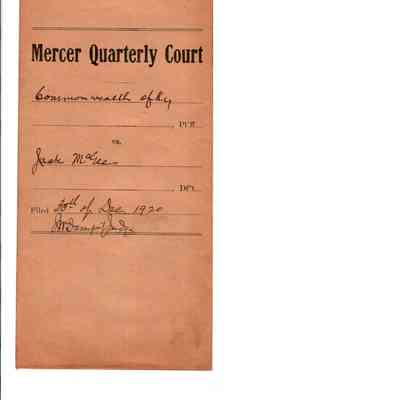 Mercer Quarterly Court
Commonwealth of Ky
, Pl'ff.
vs.
Jack McGee
, Df't.
Filed 20th of Dec 1920
Judge